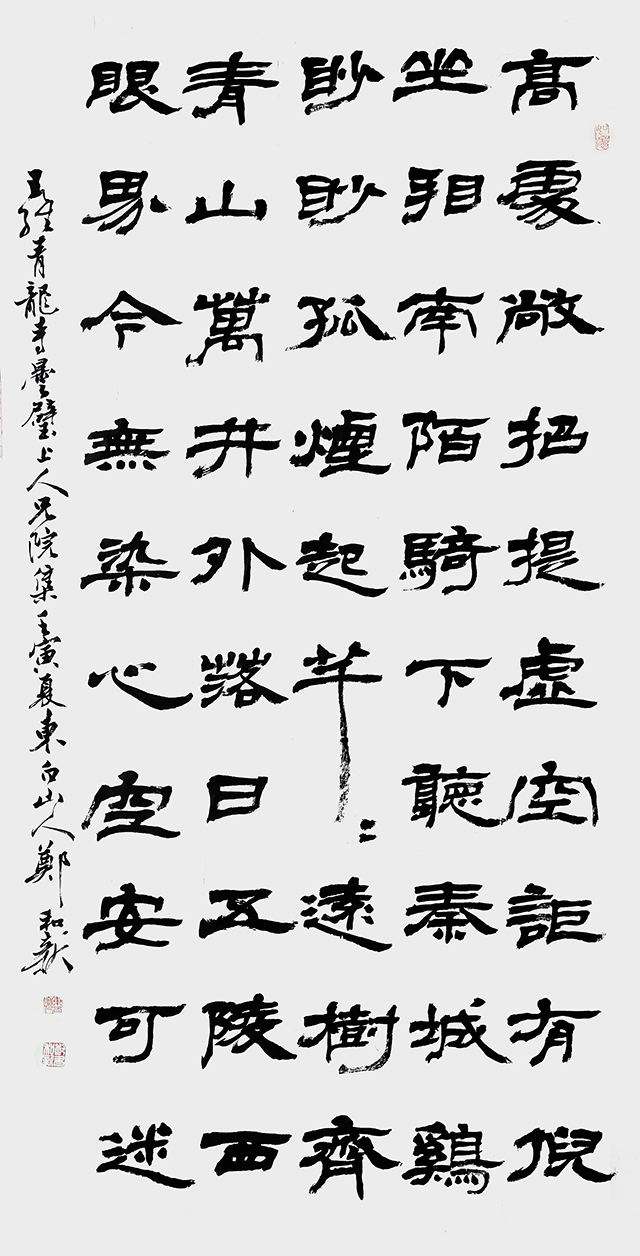 髙處敞招提虛空詎有倪
坐相南陌騎下聽秦城鷄
眇眇孤煙起芊〻遠樹齊
青山萬井外落日五陵西
眼界今無染心空安可迷
王維青龍寺曇壁上人兄院集壬寅夏東白山人鄭和新